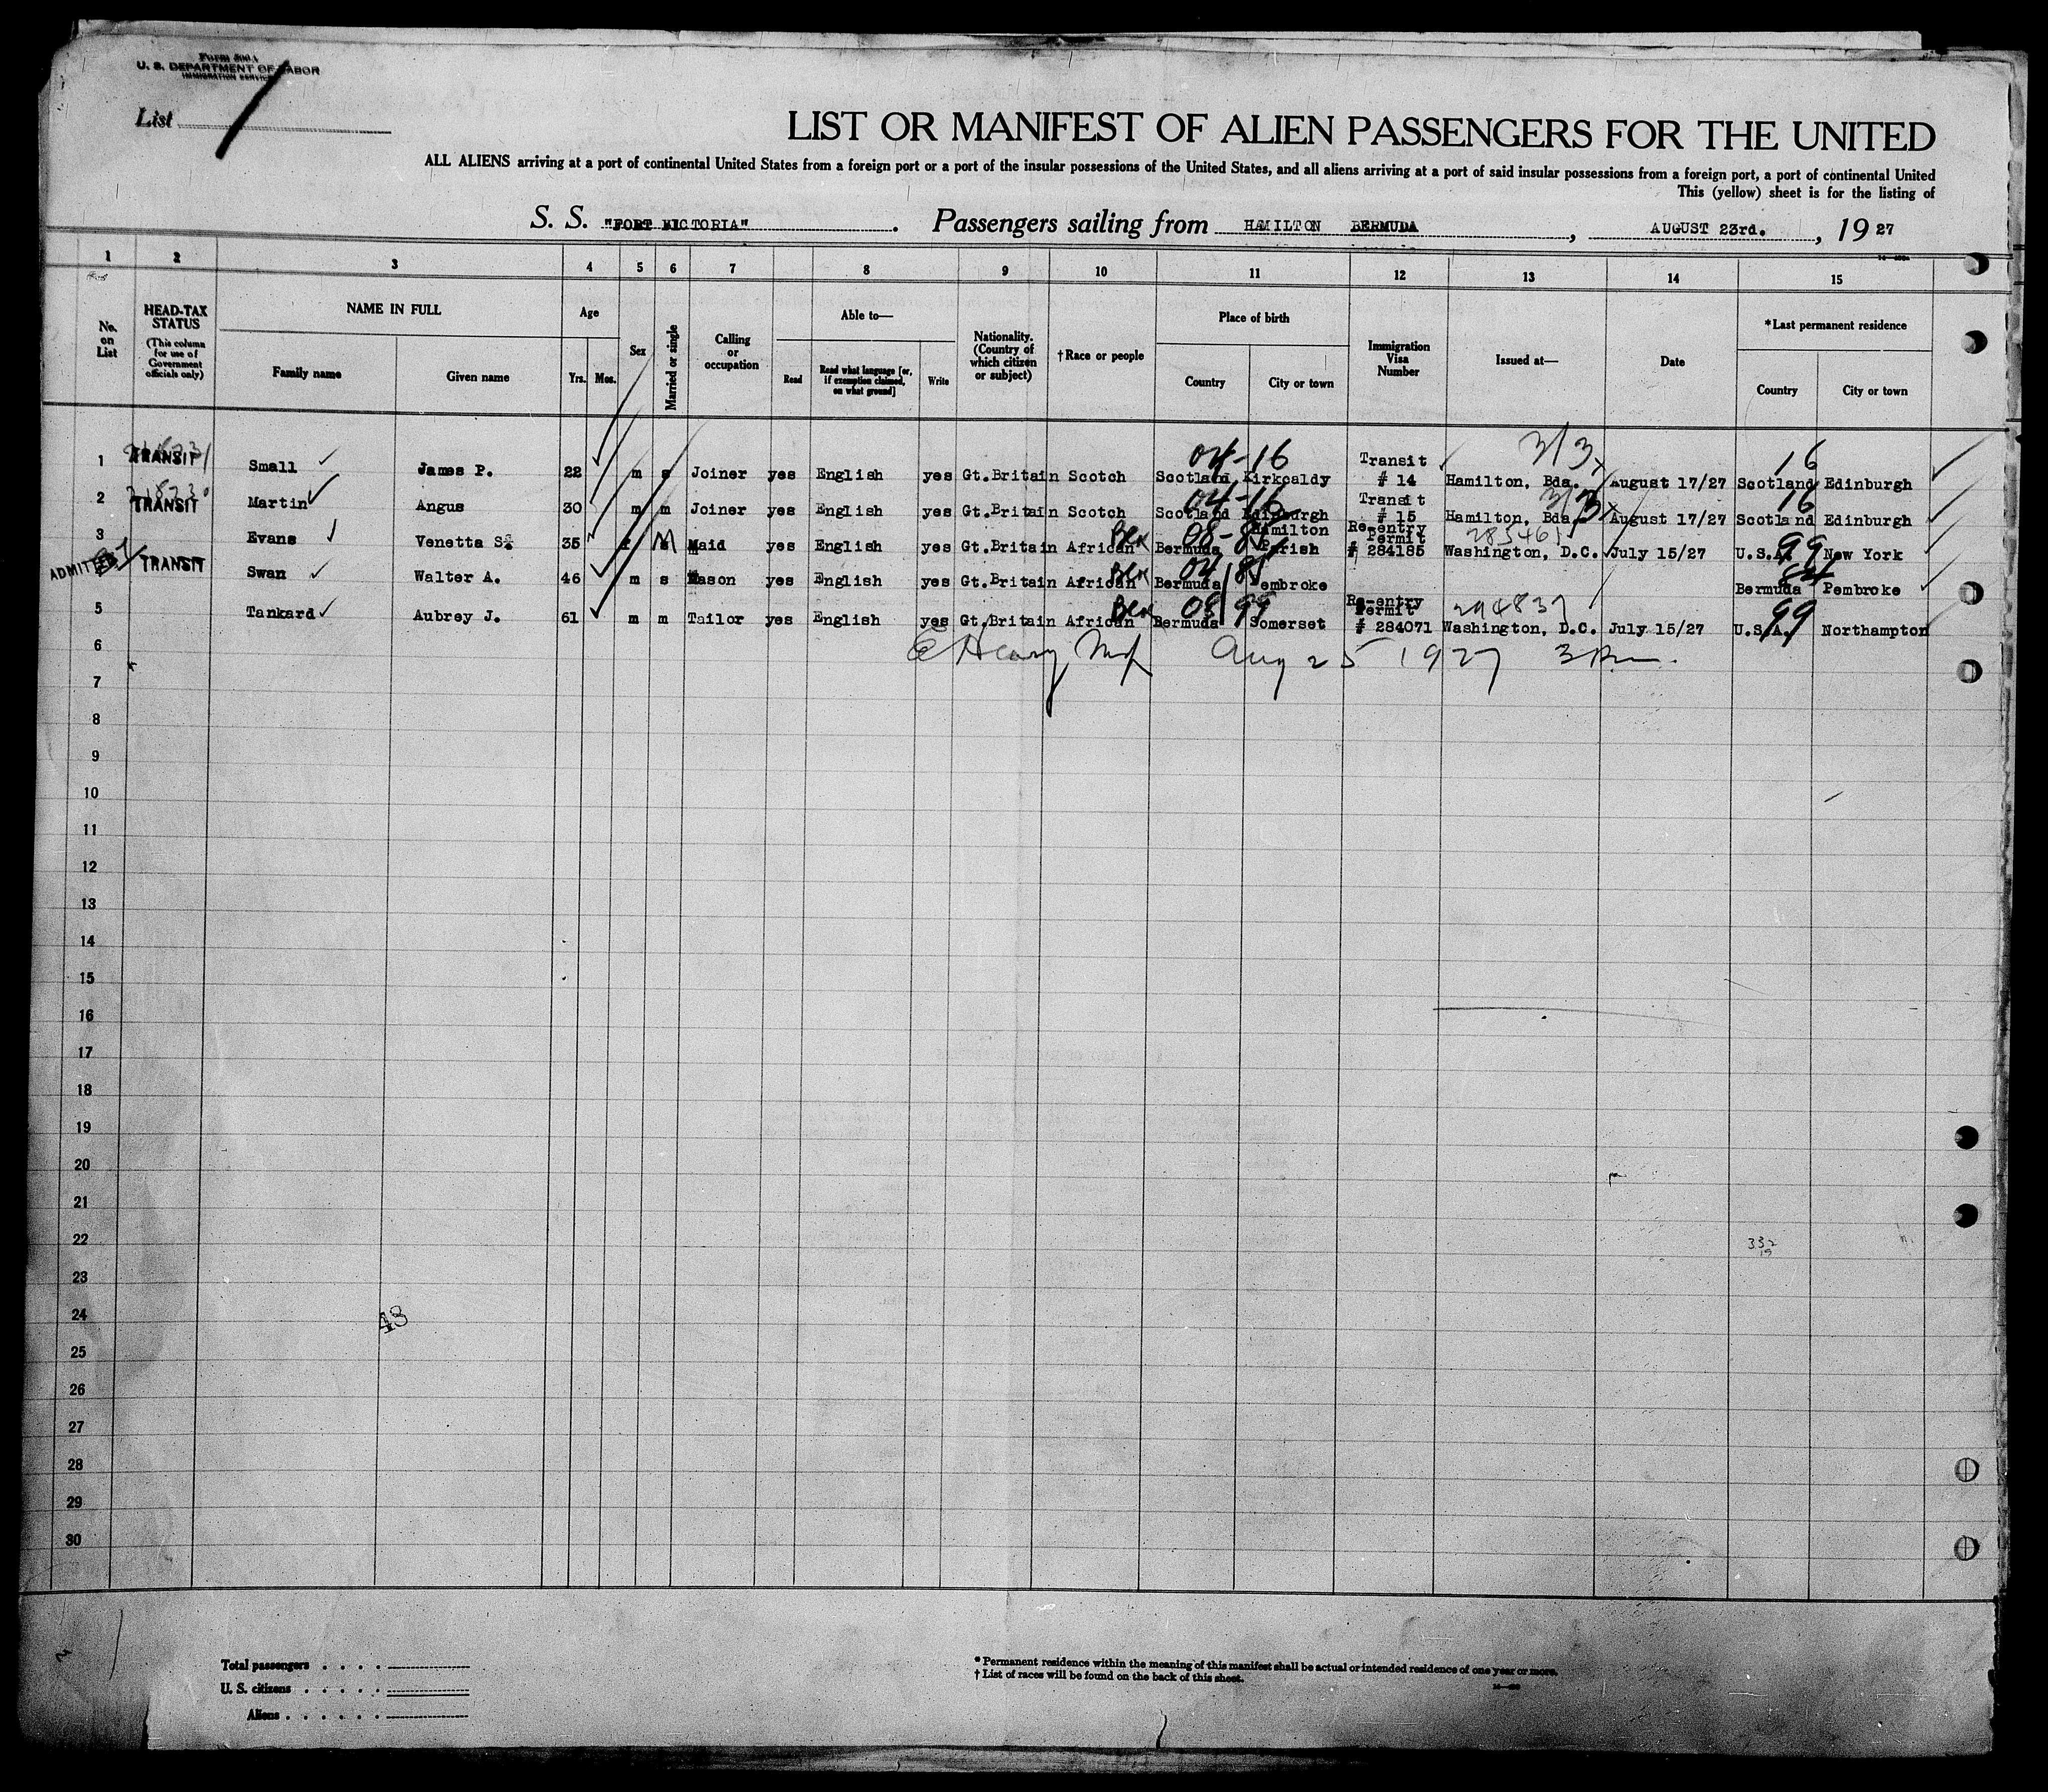 Form 500 A
U. S. DEPARTMENT OF LABOR
IMMIGRATION SERVICE
List 1
LIST OR MANIFEST OF ALIEN PASSENGERS FOR THE UNITED
ALL ALIENS arriving at a port of continental United States from a foreign port or a port of the insular possessions of the United States, and all aliens arriving at a port of said insular possessions from a foreign port, a port of continental United
This (yellow) sheet is for the listing of
S. S. "FORT VICTORIA" . Passengers sailing from HAMILTON BERMUDA , AUGUST 23rd. , 19 27
1 2 3 4 5 6 7 8 9 10 11 12 13 14 15
No. on List
HEAD-TAX STATUS
(This column for use of Government officials only)
NAME IN FULL
Family name Given name
Age
Yrs. Mos.
Sex
Married or single
Calling or occupation
Able to—
Read Read what language [or, if exemption claimed, on what ground] Write
Nationality. (Country of which citizen or subject)
†Race or people
Place of birth
Country City or town
Immigration Visa Number
Issued at—
Date
*Last permanent residence
Country City or town
04-16 3/3 16
1 TRANSIT Small James P. 22 m s Joiner yes English yes Gt.Britain Scotch Scotland Kirkcaldy Transit # 14 Hamilton, Bda. August 17/27 Scotland Edinburgh
04-16 3/3 16
2 TRANSIT Martin Angus 30 m m Joiner yes English yes Gt.Britain Scotch Scotland Edinburgh Transit # 15 Hamilton, Bda. August 17/27 Scotland Edinburgh
Blk 08-85 99
3 Evans Venetta S. 35 f M Maid yes English yes Gt.Britain African Bermuda Hamilton Parish Re-entry Permit # 284185 Washington, D.C. July 15/27 U.S.A. New York
Blk 04 85 84
ADMITTED TRANSIT Swan Walter A. 46 m s Mason yes English yes Gt.Britain African Bermuda Pembroke Bermuda Pembroke
Blk 08 99 294837 99
5 Tankard Aubrey J. 61 m m Tailor yes English yes Gt.Britain African Bermuda Somerset Re-entry Permit # 284071 Washington, D.C. July 15/27 U.S.A. Northampton
6 Aug 25 1927
7
8
9
10
11
12
13
14
15
16
17
18
19
20
21
22
332
19
23
24
43
25
26
27
28
29
30
Total passengers . . . .
U. S. citizens . . . . .
Aliens . . . . . .
* Permanent residence within the meaning of this manifest shall be actual or intended residence of one year or more.
† List of races will be found on the back of this sheet.